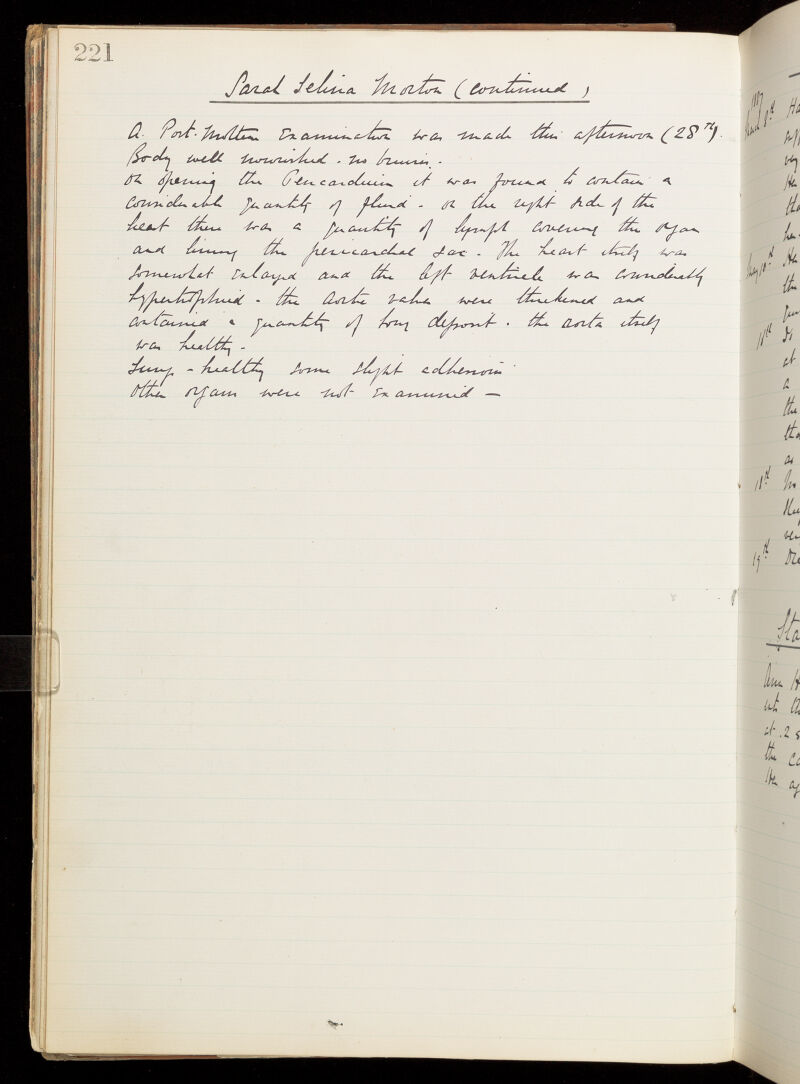 221
Sarah Selina Morton (continued)
A Post-Mortem Examination was made this afternoon (28TH).
Body well nourished - no bruises.
On opening the Pericardium it was found to contain a
considerable quantity of fluid - on the right side of the
heart there was a quantity of lymph covering the organ
and lining the pericardial sac - The heart itself was
somewhat enlarged and the left ventricle was considerably
hypertrophied - the aortic valves were thickened and
contained a quantity of bony deposit. the aorta itself
was healthy -
Lungs - healthy some slight adhesions
Other organs were not examined -
1887
March 8th Ha
10th
18th
19th
Sta
Ann H
at 2
the